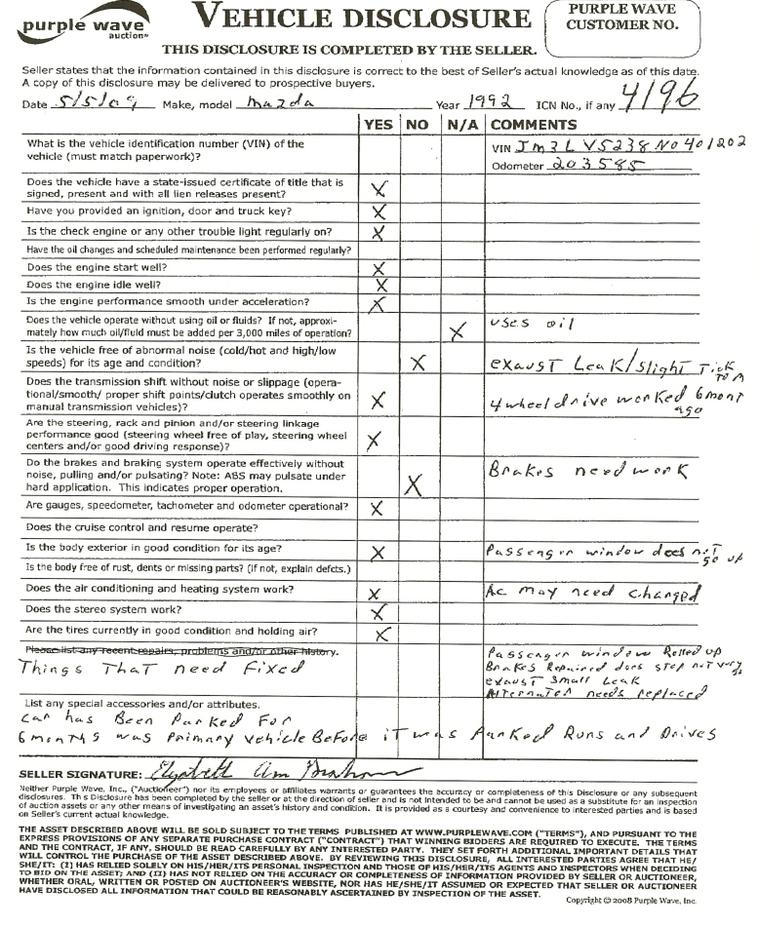 purple wave
auction
VEHICLE DISCLOSURE
PURPLE WAVE
CUSTOMER NO.
THIS DISCLOSURE IS COMPLETED BY THE SELLER.
Seller states that the information contained in this disclosure is correct to the best of Seller's actual knowledge as of this date.
A copy of this disclosure may be delivered to prospective buyers.
Date 5/5/09 Make, model Mazda Year 1992 ICN No., if any 4196
YES NO N/A COMMENTS
What is the vehicle identification number (VIN) of the
vehicle (must match paperwork)?
VIN Jm3LV5238N0401202
Odometer 203585
Does the vehicle have a state-issued certificate of title that is
signed, present and with all lien releases present? X
Have you provided an ignition, door and truck key? X
Is the check engine or any other trouble light regularly on? X
Have the oil changes and scheduled maintenance been performed regularly?
Does the engine start well? X
Does the engine idle well? X
Is the engine performance smooth under acceleration? X
Does the vehicle operate without using oil or fluids? If not, approxi-
mately how much oil/fluid must be added per 3,000 miles of operation? X uses oil
Is the vehicle free of abnormal noise (cold/hot and high/low
speeds) for its age and condition? X exaust Leak/slight Tick
Does the transmission shift without noise or slippage (opera-
tional/smooth/ proper shift points/clutch operates smoothly on
manual transmission vehicles)? X 4 wheel drive worked 6 mont
ago
Are the steering, rack and pinion and/or steering linkage
performance good (steering wheel free of play, steering wheel
centers and/or good driving response)? X
Do the brakes and braking system operate effectively without
noise, pulling and/or pulsating? Note: ABS may pulsate under
hard application. This indicates proper operation. X Brakes need work
Are gauges, speedometer, tachometer and odometer operational? X
Does the cruise control and resume operate?
Is the body exterior in good condition for its age? X Passenger window does not
go up
Is the body free of rust, dents or missing parts? (if not, explain defcts.)
Does the air conditioning and heating system work? X Ac may need changed
Does the stereo system work? X
Are the tires currently in good condition and holding air? X
Please list any recent repairs, problems and/or other history.
Things That need Fixed
Passenger window Rolled up
Brakes Repaired does stop not very
exaust small Leak
Alternater needs replaced
List any special accessories and/or attributes.
Car has Been Parked For
6 months was primary vehicle Before it was Parked Runs and Drives
SELLER SIGNATURE: Elizabeth Ann
Neither Purple Wave, Inc., ("Auctioneer") nor its employees or affiliates warrants or guarantees the accuracy or completeness of this Disclosure or any subsequent
disclosures. This Disclosure has been completed by the seller or at the direction of seller and is not intended to be and cannot be used as a substitute for an inspection
of auction assets or any other means of investigating an asset's history and condition. It is provided as a courtesy and convenience to interested parties and is based
on Seller's current actual knowledge.
THE ASSET DESCRIBED ABOVE WILL BE SOLD SUBJECT TO THE TERMS PUBLISHED AT WWW.PURPLEWAVE.COM ("TERMS"), AND PURSUANT TO THE
EXPRESS PROVISIONS OF ANY SEPARATE PURCHASE CONTRACT ("CONTRACT") THAT WINNING BIDDERS ARE REQUIRED TO EXECUTE. THE TERMS
AND THE CONTRACT, IF ANY, SHOULD BE READ CAREFULLY BY ANY INTERESTED PARTY. THEY SET FORTH ADDITIONAL IMPORTANT DETAILS THAT
WILL CONTROL THE PURCHASE OF THE ASSET DESCRIBED ABOVE. BY REVIEWING THIS DISCLOSURE, ALL INTERESTED PARTIES AGREE THAT HE/
SHE/IT: (I) HAS RELIED SOLELY ON HIS/HER/ITS PERSONAL INSPECTION AND THOSE OF HIS/HER/ITS AGENTS AND INSPECTORS WHEN DECIDING
TO BID ON THE ASSET; AND (II) HAS NOT RELIED ON THE ACCURACY OR COMPLETENESS OF INFORMATION PROVIDED BY SELLER OR AUCTIONEER,
WHETHER ORAL, WRITTEN OR POSTED ON AUCTIONEER'S WEBSITE, NOR HAS HE/SHE/IT ASSUMED OR EXPECTED THAT SELLER OR AUCTIONEER
HAVE DISCLOSED ALL INFORMATION THAT COULD BE REASONABLY ASCERTAINED BY INSPECTION OF THE ASSET.
Copyright © 2008 Purple Wave, Inc.